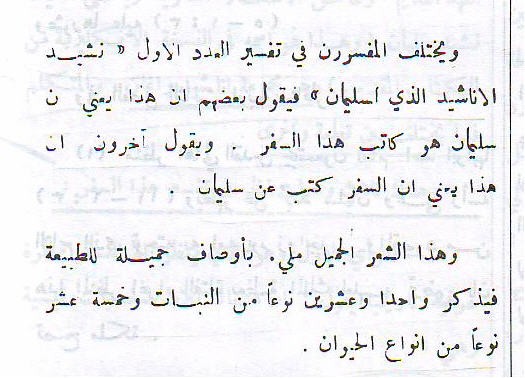 ويختلف المفسرن في تفسير العدد الاول « نشيد
الاناشيد الذي اسليمان » فيقول بعضهم ان هذا يعني ن
سليمان هو كاتب هذا السفر . ويقول آخرون ان
هذا يعني ان السفر كتب عن سليمان .
وهذا الشعر الجميل ملي. بأوصاف جميلة للطبيعة
فيذكر واحدا وعشرين نوعاً من النبات وخمسة عشر
نوعاً من انواع الحيوان .